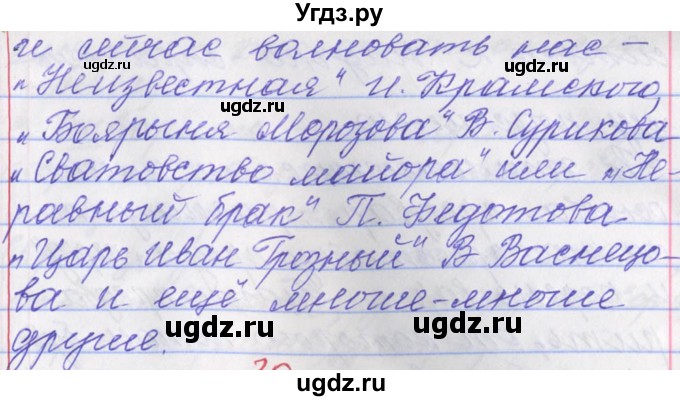 Угдз.ру
и сейчас волновать нас –
ugdz.ru ugdz.ru
„Неизвестная“ И. Крамского,
„Боярыня Морозова“ В. Сурикова
ugdz.ru
„Сватовство майора“ или „Не-
равный брак“ П. Федотова
ugdz.ru
„Царь Иван Грозный“ В Васнецо-
ugdz.ru
ва и ещё многие-многие
ugdz.ru ugdz.ru
другие.
ugdz.ru